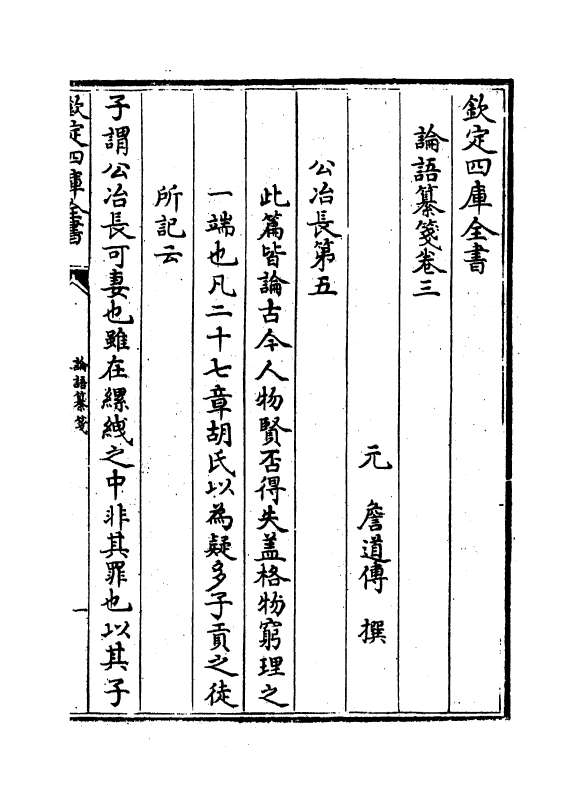 欽定四庫全書
論語纂箋卷三
元　詹道傳　撰
公冶長第五
此篇皆論古今人物賢否得失盖格物窮理之
一端也凡二十七章胡氏以為疑多子貢之徒
所記云
子謂公冶長可妻也雖在縲絏之中非其罪也以其子
欽定四庫全書
論語纂箋
一